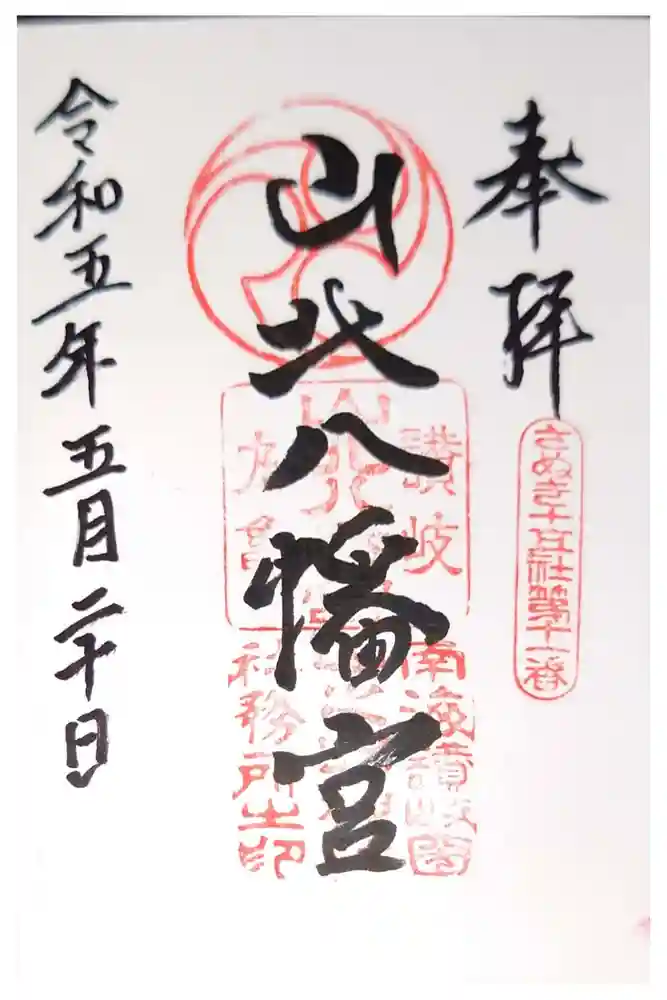 奉拝
さぬき十五社第十一番
山北八幡宮
讃岐
丸亀
南海讃岐國
社務所之印
令和五年五月二十日